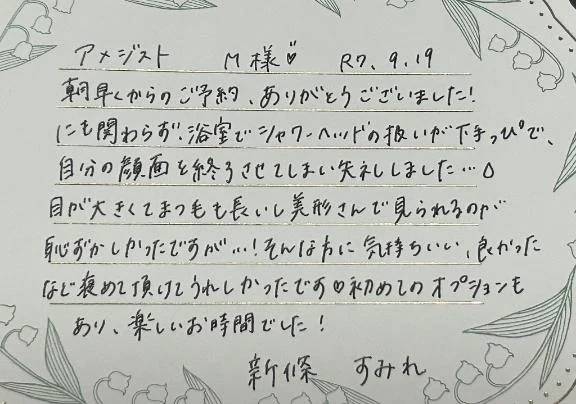 アメジスト M様♡ R7.9.19
朝早くからのご予約、ありがとうございました!
にも関わらず、浴室でシャワーヘッドの扱いが下手っぴで、
自分の顔面を終了させてしまい失礼しました…💧
目が大きくてまつ毛も長いし美形さんで見られるのが
恥ずかしかったですが…!そんな方に気持ちいい、良かった
など褒めて頂けてうれしかったです♡初めてのオプションも
あり、楽しいお時間でした!
新條 すみれ